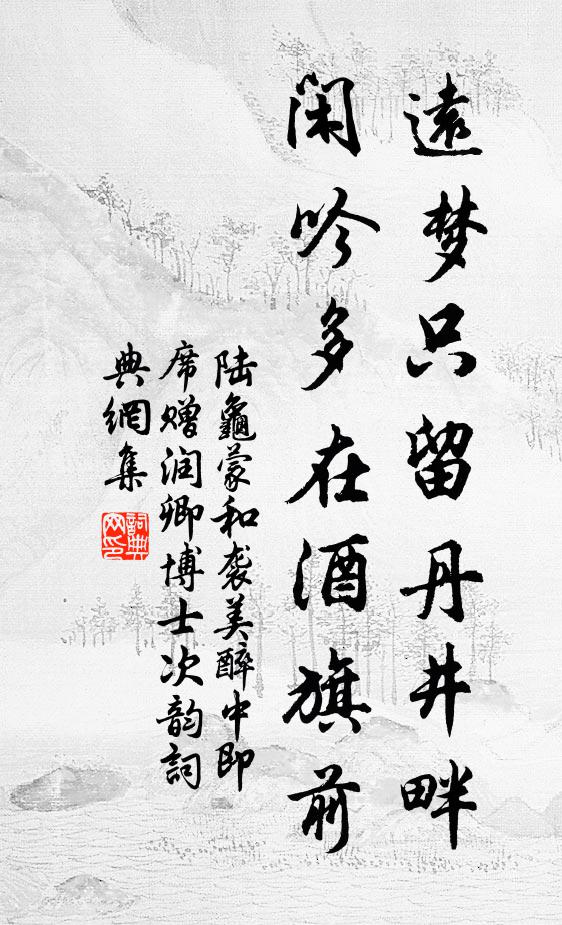 遠梦只留丹井畔
闲吟多在酒旗前
陆龜蒙和袭美醉中即
席赠润卿博士次韵詞
典網集
詞典网印